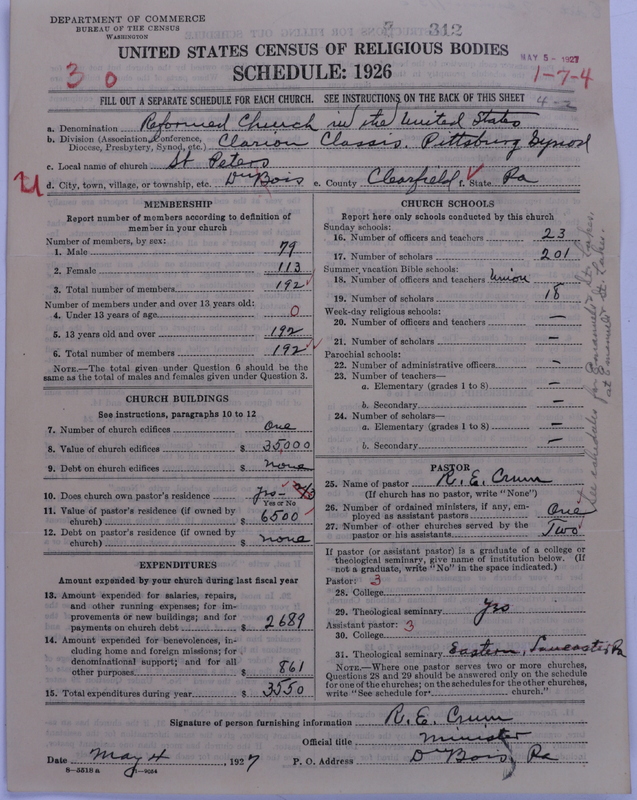 DEPARTMENT OF COMMERCE
BUREAU OF THE CENSUS
WASHINGTON
312
UNITED STATES CENSUS OF RELIGIOUS BODIES
MAY 5 - 1927
SCHEDULE: 1926
3 0
1-7-4
FILL OUT A SEPARATE SCHEDULE FOR EACH CHURCH. SEE INSTRUCTIONS ON THE BACK OF THIS SHEET
4-2
a. Denomination Reformed Church in the United States
b. Division (Association, Conference, Diocese, Presbytery, Synod, etc.) Clarion Classis, Pittsburg Synod
c. Local name of church St Peters
d. City, town, village, or township, etc. Du Bois e. County Clearfield f. State Pa
MEMBERSHIP
Report number of members according to definition of
member in your church
Number of members, by sex:
1. Male 79
2. Female 113
3. Total number of members 192
Number of members under and over 13 years old:
4. Under 13 years of age 0
5. 13 years old and over 192
6. Total number of members 192
NOTE.—The total given under Question 6 should be
same as the total of males and females given under Question 3.
CHURCH BUILDINGS
See instructions, paragraphs 10 to 12
7. Number of church edifices One
8. Value of church edifices $ 35,000
9. Debt on church edifices $ none
10. Does church own pastor's residence yes
Yes or No
11. Value of pastor's residence (if owned by
church) $ 6500
12. Debt on pastor's residence (if owned by
church) $ none
EXPENDITURES
Amount expended by your church during last fiscal year
13. Amount expended for salaries, repairs,
and other running expenses; for im-
provements or new buildings; and for
payments on church debt $ 2689
14. Amount expended for benevolences, in-
cluding home and foreign missions; for
denominational support; and for all
other purposes $ 861
15. Total expenditures during year $ 3550
CHURCH SCHOOLS
Report here only schools conducted by this church
Sunday schools:
16. Number of officers and teachers 23
17. Number of scholars 201
Summer vacation Bible schools:
18. Number of officers and teachers Union
19. Number of scholars 18
Week-day religious schools:
20. Number of officers and teachers —
21. Number of scholars —
Parochial schools:
22. Number of administrative officers —
23. Number of teachers—
a. Elementary (grades 1 to 8) —
b. Secondary —
24. Number of scholars—
a. Elementary (grades 1 to 8) —
b. Secondary —
See schedules for Emanuel's St. Lukes.
PASTOR
25. Name of pastor R. E. Crum
(If church has no pastor, write "None")
26. Number of ordained ministers, if any, em-
ployed as assistant pastors One
27. Number of other churches served by the
pastor or his assistants Two
If pastor (or assistant pastor) is a graduate of a college or
theological seminary, give name of institution below. (If
not a graduate, write "No" in the space indicated.)
Pastor: 3
28. College
29. Theological seminary Yes
Assistant pastor: 3
30. College
31. Theological seminary Eastern, Lancaster, Pa
NOTE.—Where one pastor serves two or more churches,
Questions 28 and 29 should be answered only on the schedule
for one of the churches; on the schedules for the other churches,
write "See schedule for church."
Signature of person furnishing information R. E. Crum
Official title Minister
Date May 4, 1927 P. O. Address Du Bois, Pa
8-5518 a